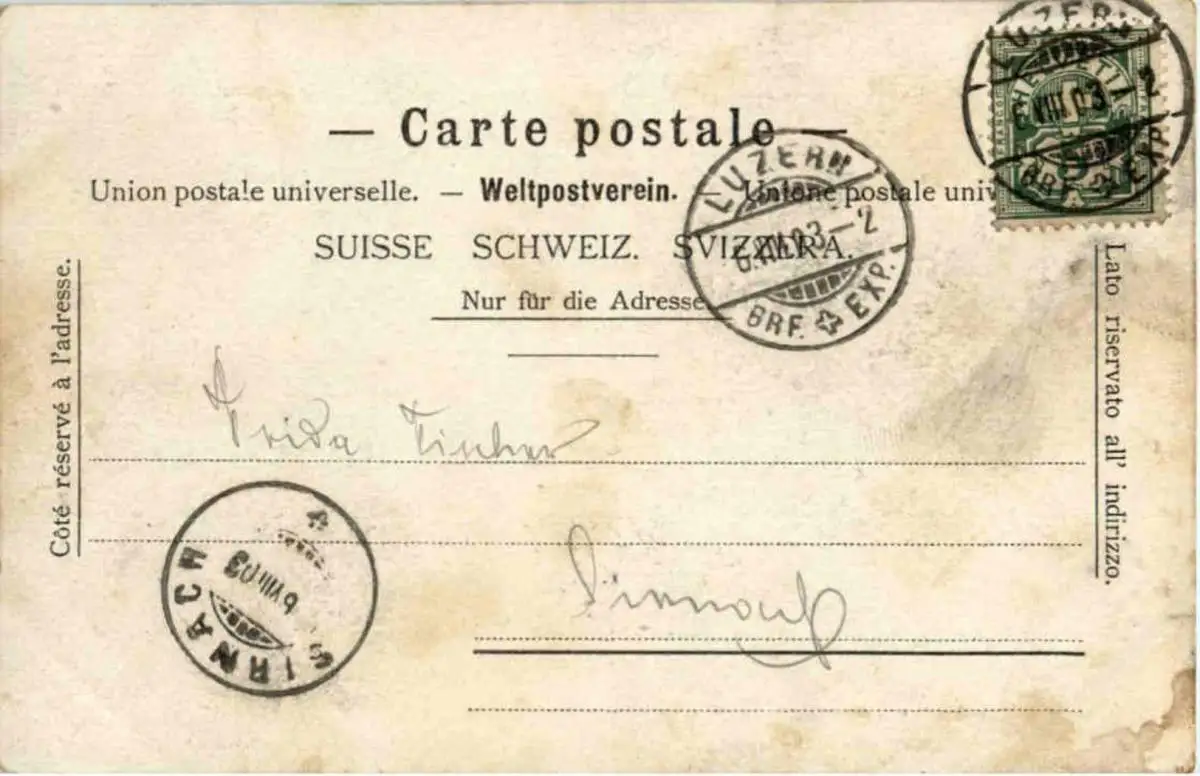 — Carte postale —
Union postale universelle. — Weltpostverein. — Unione postale univ
SUISSE SCHWEIZ. SVIZZERA.
Nur für die Adresse
Côté réservé à l'adresse.
Lato riservato all' indirizzo.
LUZERN
6.VIII.03.–2
BRF. EXP.
LUZERN
VIII.03 –2
BRF. EXP.
HELVETIA
FRANCO
5
Frida Fischer
Sirnach
SIRNACH
6 VIII 03